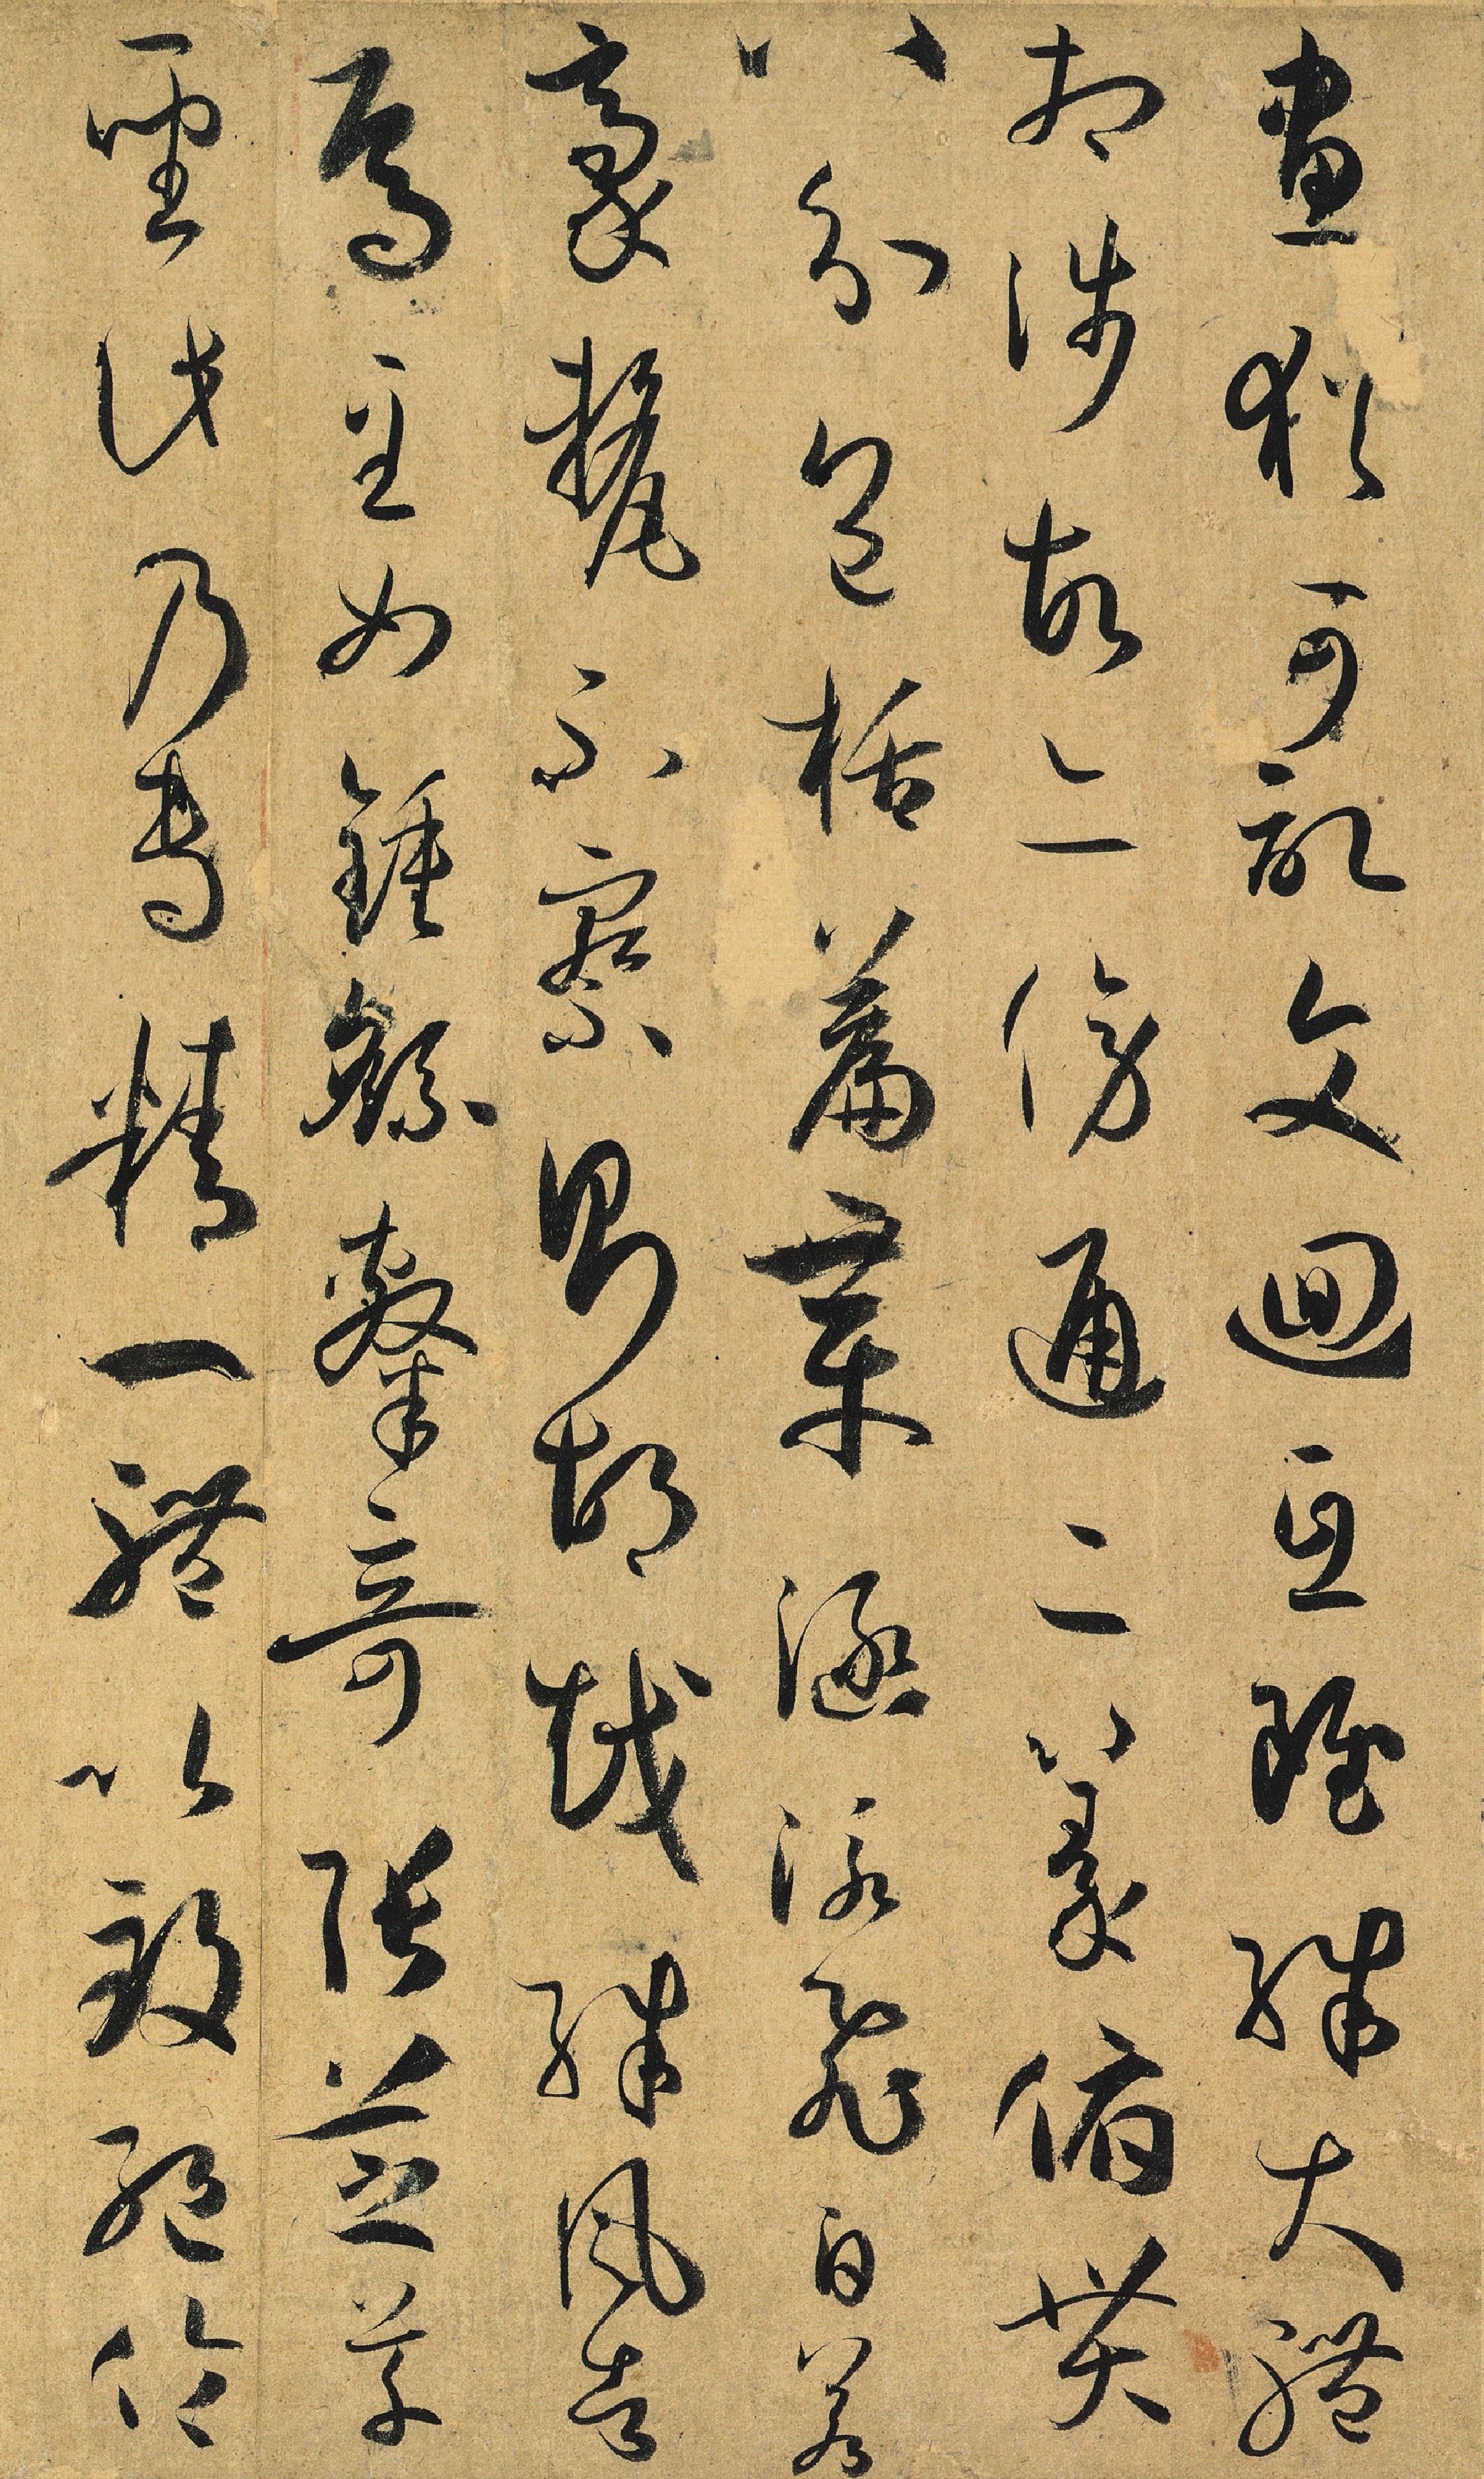 畫猶可記文迴互雖殊大體
相涉故亦傍通二篆俯貫
八分包括篇章涵泳飛白若
豪氂不察則胡越殊風者
焉至如鍾繇隸奇張芝草
聖此乃專精一體以致絕倫